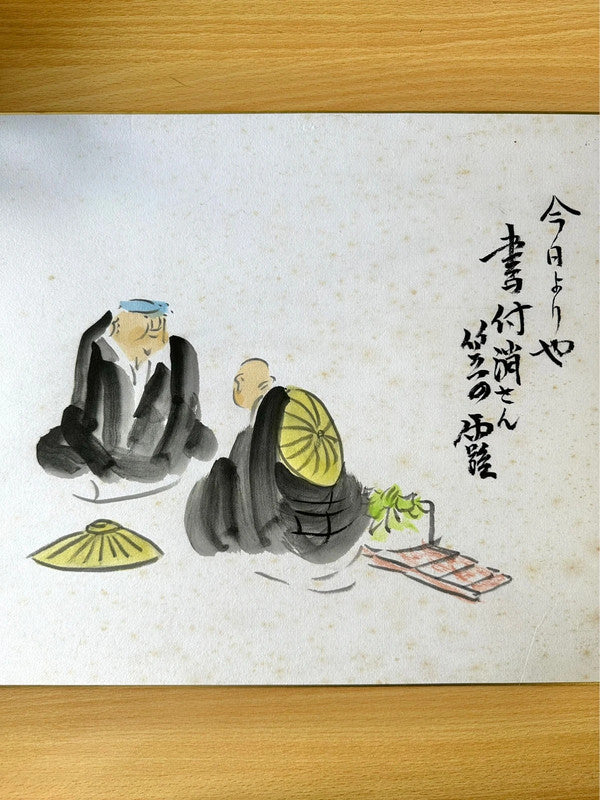 今日よりや
書付消さん
笠の露